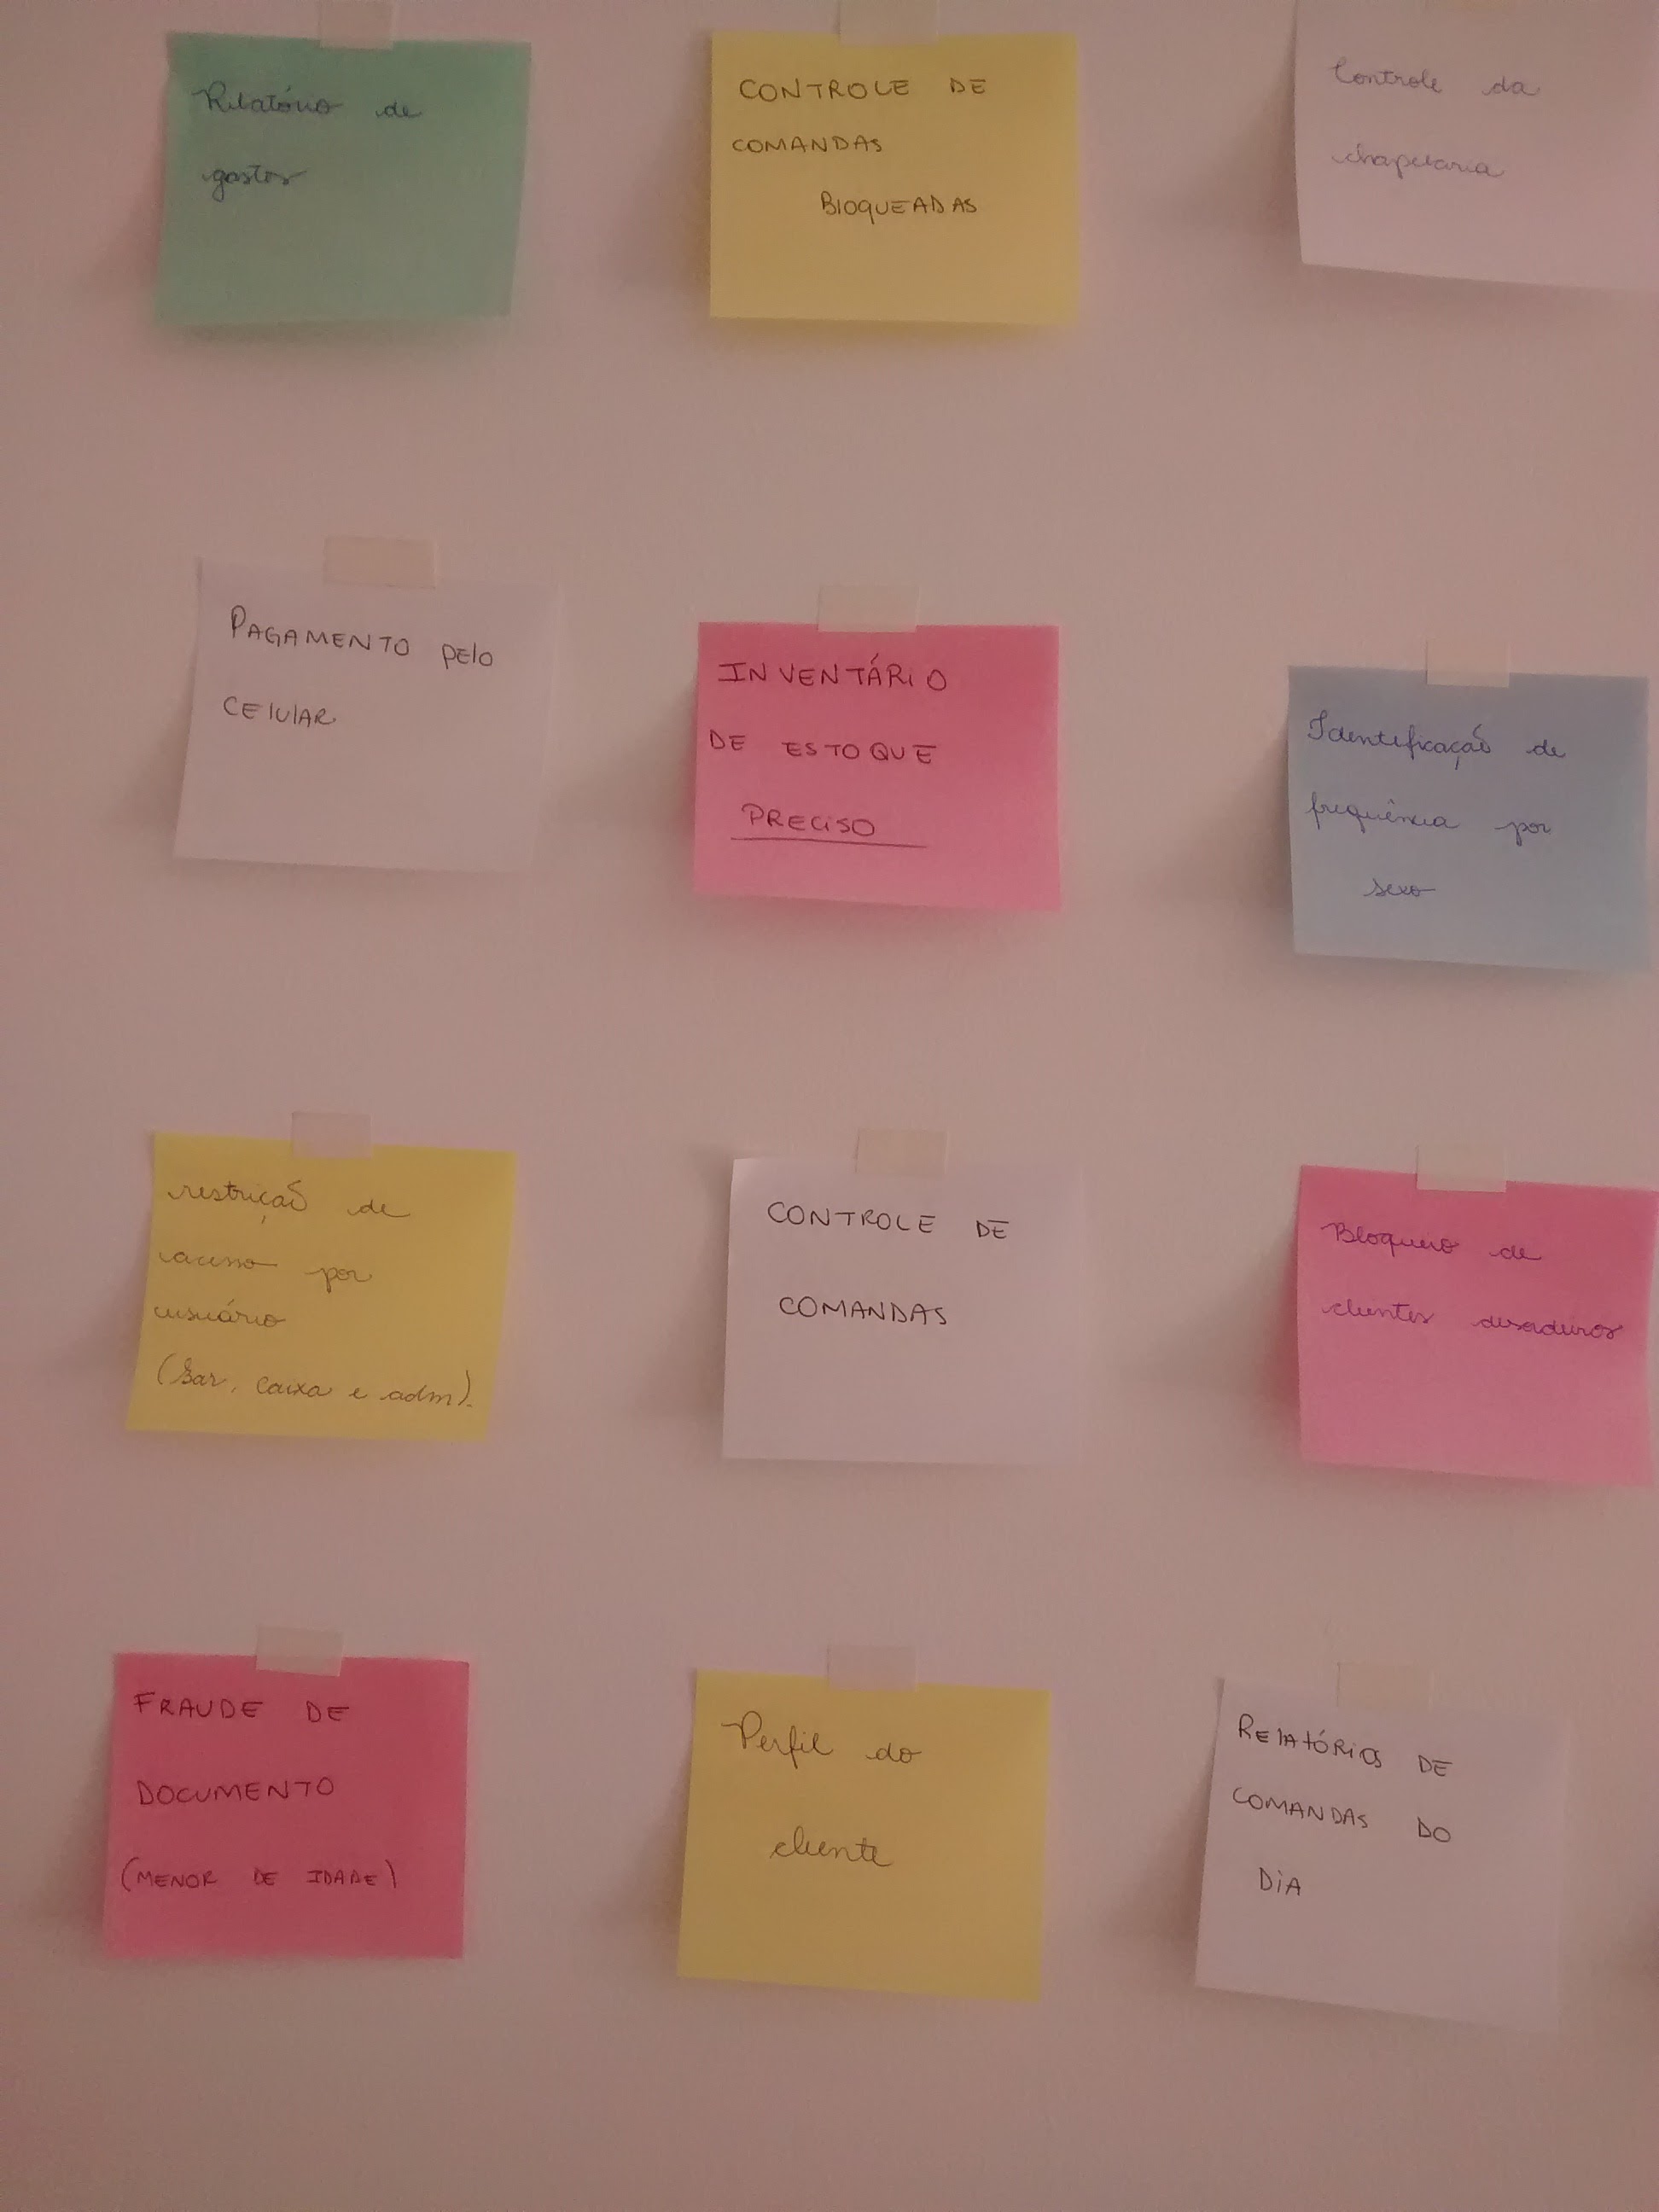 Relatório de
gastos
CONTROLE DE
COMANDAS
BLOQUEADAS
Controle da
chapelaria
PAGAMENTO PELO
CELULAR
INVENTÁRIO
DE ESTOQUE
PRECISO
Identificação de
frequência por
sexo
restrição de
acesso por
usuário
(Bar, caixa e adm).
CONTROLE DE
COMANDAS
Bloqueio de
clientes desordeiros
FRAUDE DE
DOCUMENTO
(MENOR DE IDADE)
Perfil do
cliente
RELATÓRIOS DE
COMANDAS DO
DIA